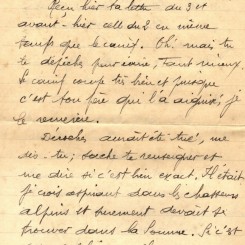 Reçu hier ta lettre du 3 et
avant-hier celle du 2 en même
temps que le canif. Oh! mais tu
te dépêches pour écrire, Tant mieux.
Le canif coupe très bien et puisque
c'est ton père qui l'a aiguisé, je
le remercie.
Desroches aurait été tué, me
dis-tu; sache te renseigner et
me dire si c'est bien exact. Il était
je crois aspirant dans les chasseurs
alpins et sûrement devait se
trouver dans la Somme. Si c'est